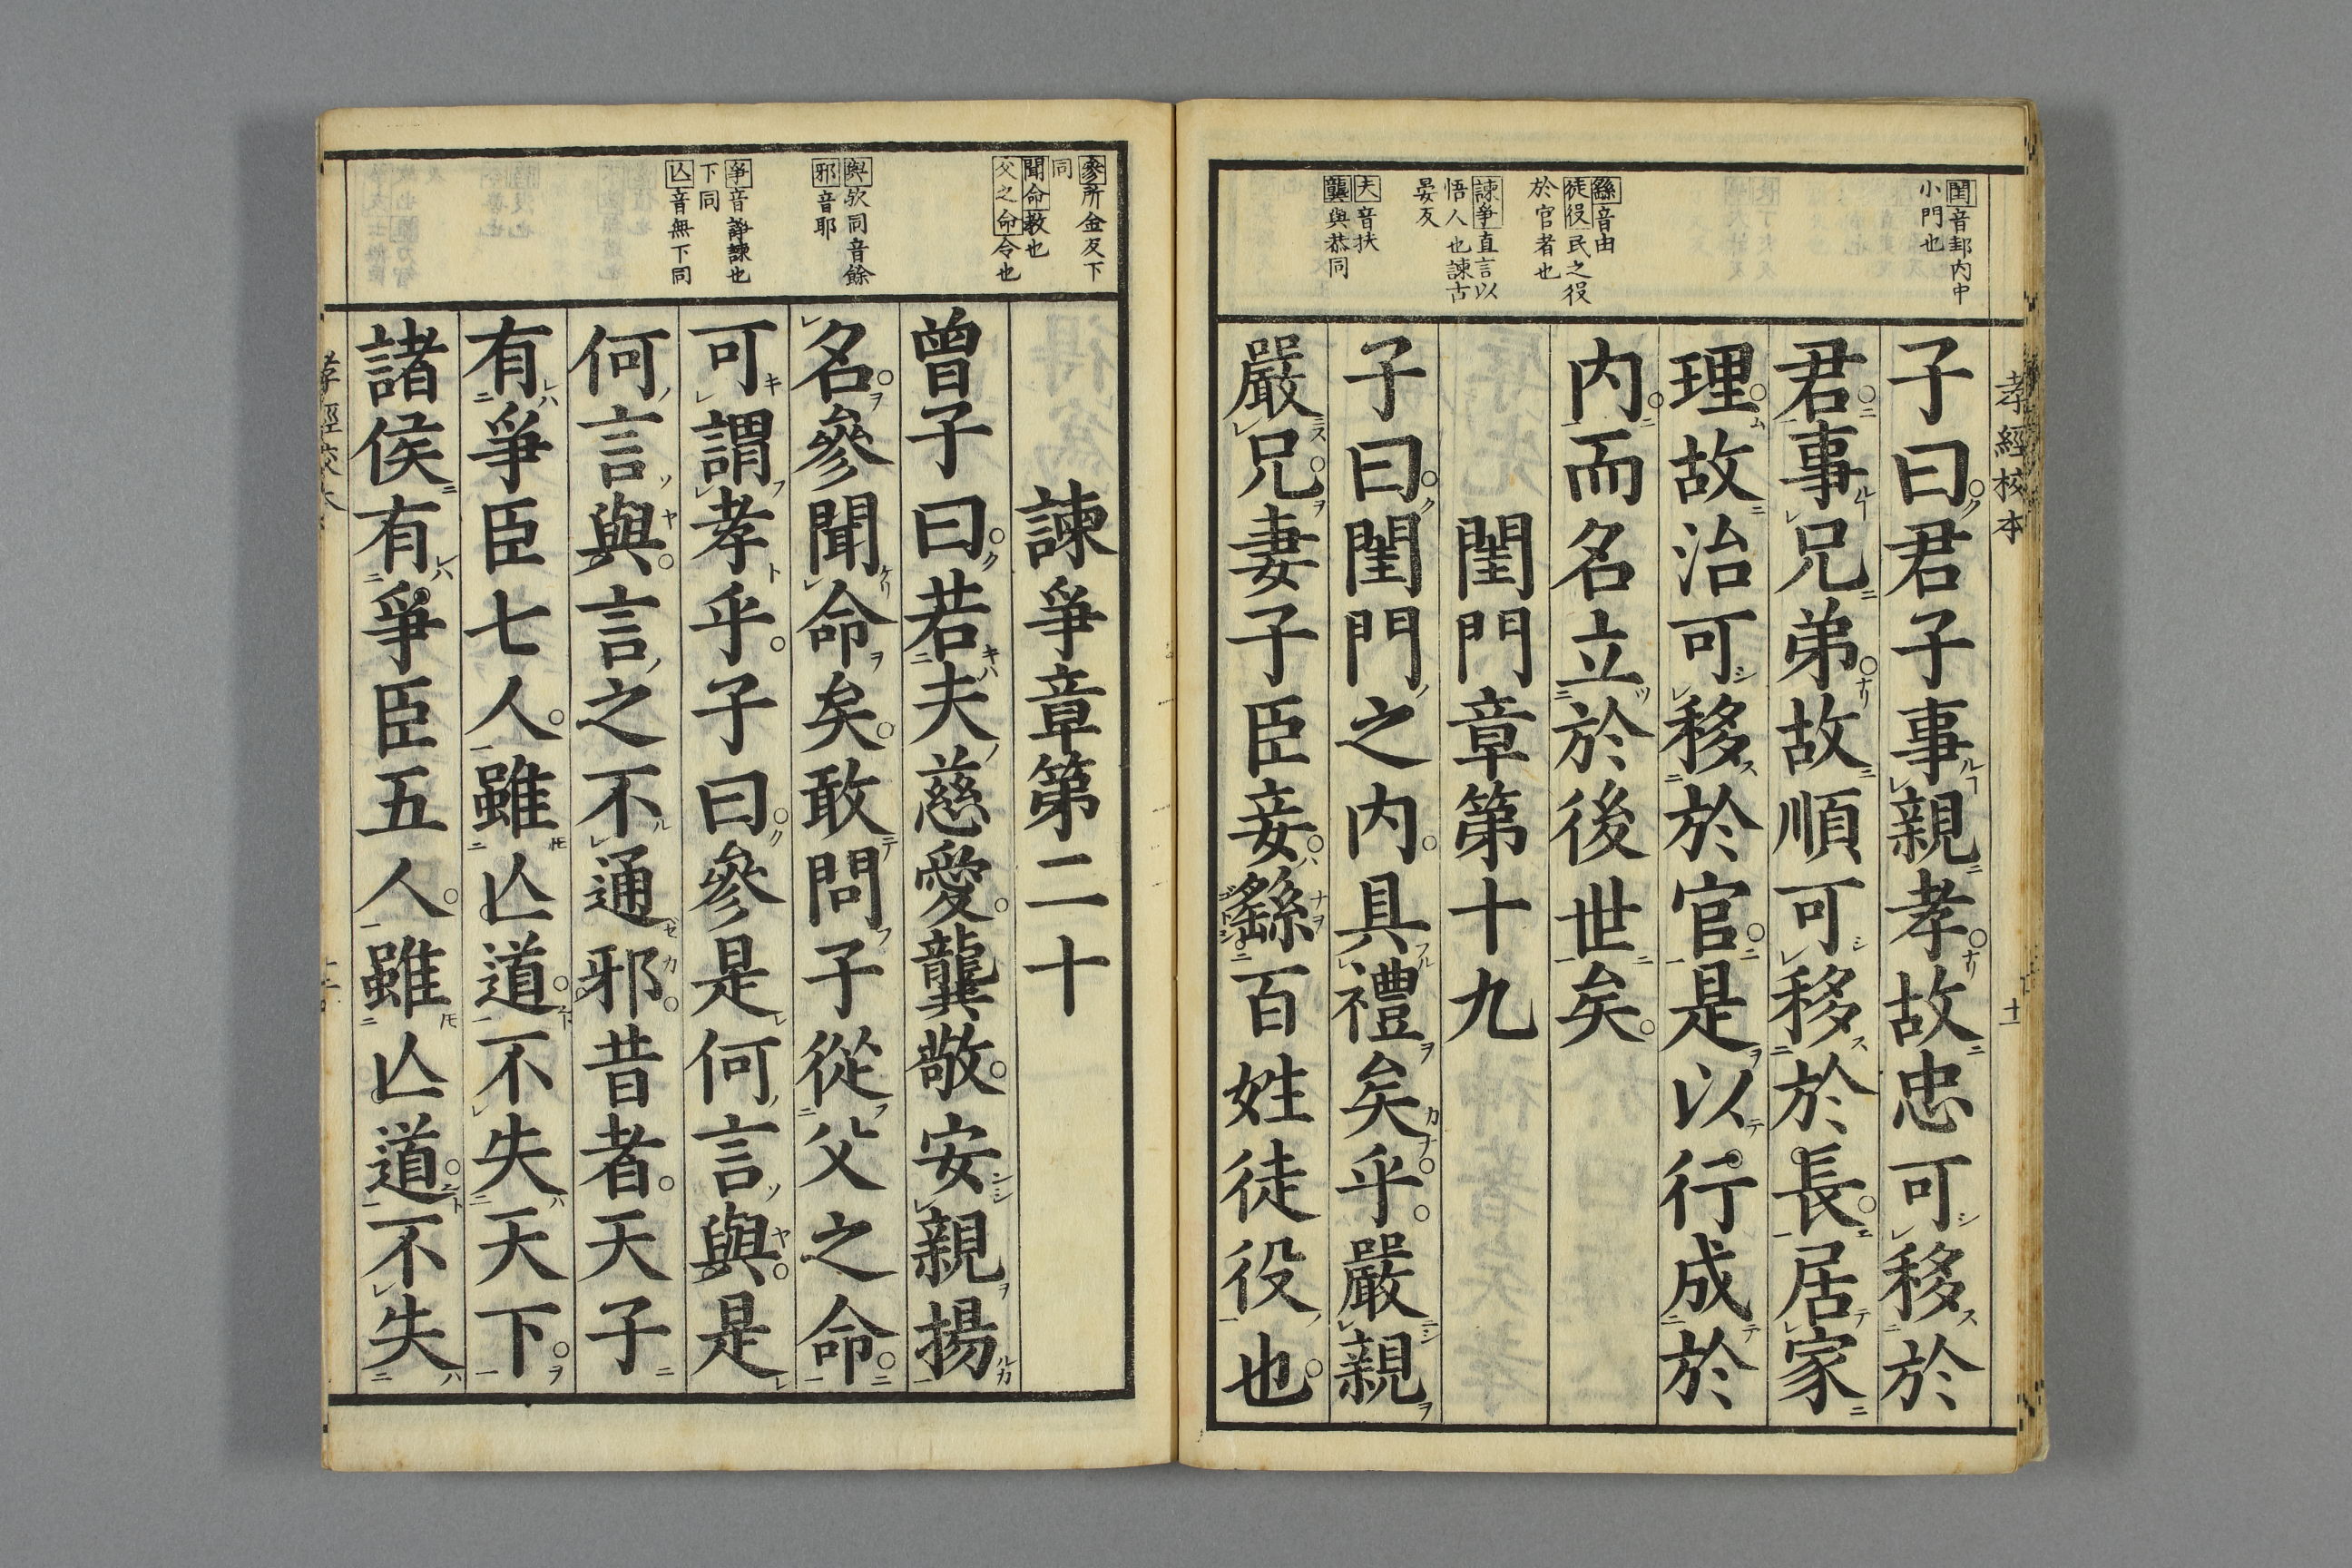 孝經校本
十一
閨音邽内中
小門也
繇音由
徒役民之役
於官者也
諫爭直言以
悟人也諫古
晏反
夫音扶
龔與恭同
子曰君子事親孝故忠可移於
君事兄弟故順可移於長居家
理故治可移於官是以行成於
内而名立於後世矣
閨門章第十九
子曰閨門之内具禮矣乎嚴親
嚴兄妻子臣妾繇百姓徒役也
參所金反下
同
聞命教也
父之命令也
與欤同音餘
邪音耶
爭音諍諫也
下同
亾音無下同
諫爭章第二十
曾子曰若夫慈愛龔敬安親揚
名參聞命矣敢問子從父之命
可謂孝乎子曰參是何言與是
何言與言之不通邪昔者天子
有爭臣七人雖亾道不失天下
諸侯有爭臣五人雖亾道不失